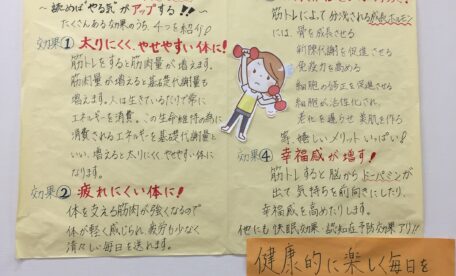 〜読めば"やる気"がアップする!!〜
たくさんある効果のうち、4つを紹介!
効果① 太りにくく、やせやすい体に!
筋トレをすると筋肉量が増えます。
筋肉量が増えると基礎代謝量も
増えます。人は生きているだけで常に
エネルギーを消費。この生命維持の為に
消費されるエネルギーを基礎代謝量と
いい、増えると太りにくく、やせやすい体に
なります。
効果② 疲れにくい体に!
体を支える筋肉が強くなるので
体が軽く感じられ疲労も少なく
清々しい毎日を送れます。
筋トレによって分泌される成長ホルモン
には、骨を成長させる
新陳代謝を促進させる
免疫力を高める
細胞の修正を促進させる
細胞が活性化され、
老化を遅らせ美肌を作る
等、嬉しいメリットいっぱい!
効果④ 幸福感が増す!
筋トレすると脳からドーパミンが
出て、気持ちを前向きにしたり、
幸福感を高めたりします。
他にも快眠効果、認知症予防効果アリ!!
健康的に楽しく毎日を